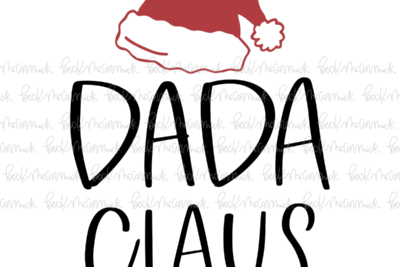 DADA
CLAUS